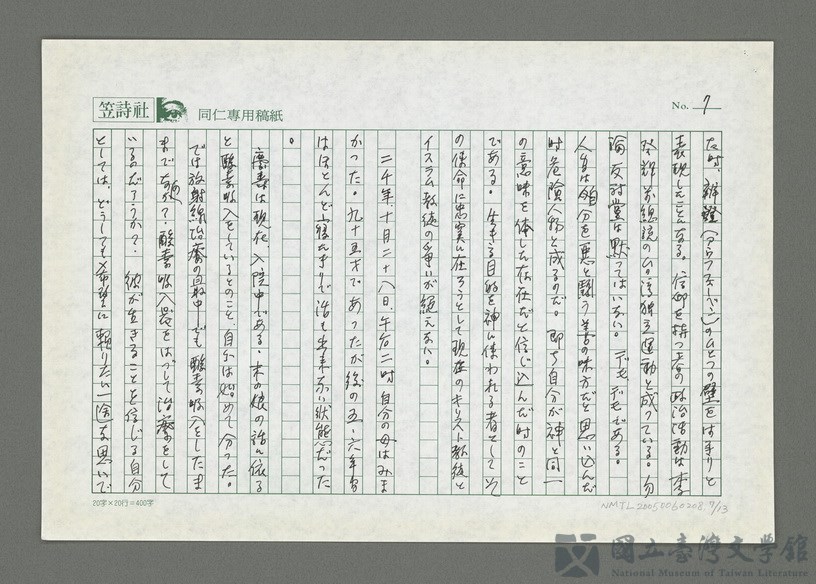 笠詩社
同仁專用稿紙
No. 7
た時、辯證(アウフヘーベン)のひとつの壁をはすりと
表現したことになる。信仰を持つ者の政治活動は李
登輝前總統の台湾独立運動と成っている。勿
論反対党は默ってはいない。デモ、デモである。
人々は自分を悪と闘う善の味方だと思い込んだ
時危険人物と成るのだ。即ち自分が神と同一
の意味を体した存在だと信じ込んだ時のこと
である。生きる目的を神に使われる者として、そ
の使命に忠実に在ろうとして現在のキリスト教徒と
イスラム教徒の争いが絶えない。
二千年、十月二十八日、午后二时、自分の母はみま
かった。九十五才であったが後の五・六年間
はほとんど寝たきりで治も出来ない状態だった
。
慶壽は現在、入院中である。末の娘の話に依る
と酸素吸入をしているとのこと、自分は始めて分った。
では放射線治療の最中でも酸素吸入をしたま
まで有る?酸素吸入器をはづして治療をして
いるのだろうか?彼が生きることを信じる自分
としては、どうしても希望に頼りたい一途な思いで
20字×20行=400字
NMTL20050060208.7/13
國立臺灣文學館
National Museum of Taiwan Literature